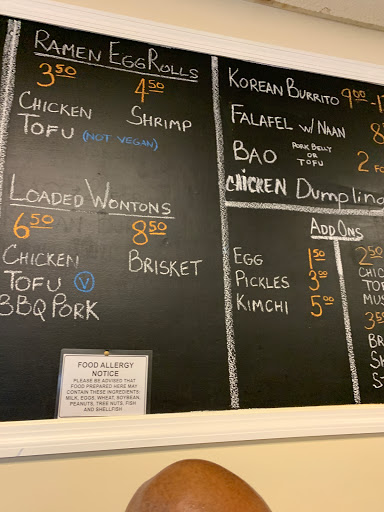 RAMEN EGG ROLLS
3.50 4.50
CHICKEN SHRIMP
TOFU (NOT VEGAN)
LOADED WONTONS
6.50 8.50
CHICKEN BRISKET
TOFU V
BBQ PORK
KOREAN BURRITO 9.00
FALAFEL W/ NAAN 8
BAO PORK BELLY OR TOFU 2 FO
CHICKEN Dumpling
ADD ONS
EGG 1.50
PICKLES 3.00
KIMCHI 5.00
2.50
CHIC
TOF
MUS
3.50
BR
SH
S
FOOD ALLERGY
NOTICE
PLEASE BE ADVISED THAT
FOOD PREPARED HERE MAY
CONTAIN THESE INGREDIENTS:
MILK, EGGS, WHEAT, SOYBEAN,
PEANUTS, TREE NUTS, FISH
AND SHELLFISH